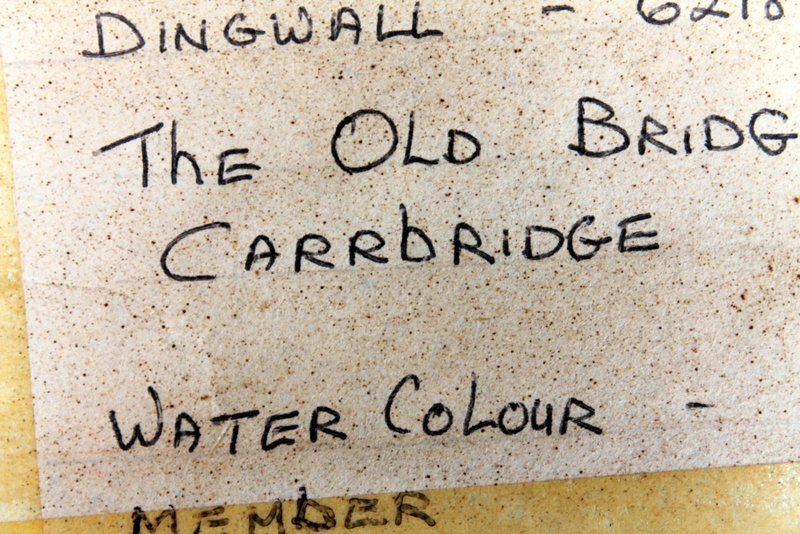 DINGWALL - 6218
The OLD BRIDG
CARRbRIDGE
WATER COLOUR -
MEMBER